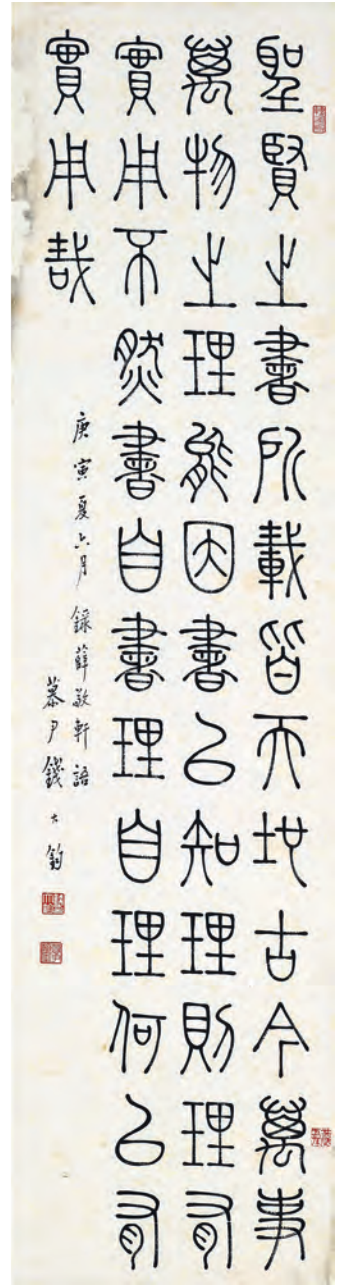 聖賢之書所載皆天地古今萬事
萬物之理能因書以知理則理有
實用不然書自書理自理何以有
實用哉
庚寅夏六月錄薛敬軒語
慕尹錢大鈞